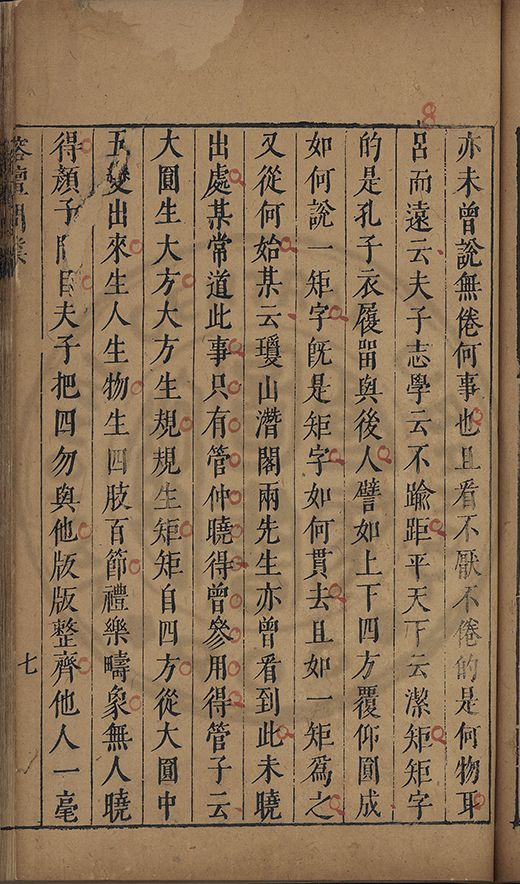 亦未曾說無倦何事也且看不厭不倦的是何物耳
呂而遠云夫子志學云不踰距平天下云潔矩矩字
的是孔子衣履畱與後人譬如上下四方覆仰圓成
如何說一矩字旣是矩字如何貫去且如一矩爲之
又從何始某云瓊山潛閣兩先生亦曾看到此未曉
出處某常道此事只有管仲曉得曾參用得管子云
大圓生大方大方生規規生矩矩自四方從大圓中
五變出來生人生物生四肢百節禮樂疇象無人曉
得顏子目夫子把四勿與他版版整齊他人一毫
榕壇問業
七